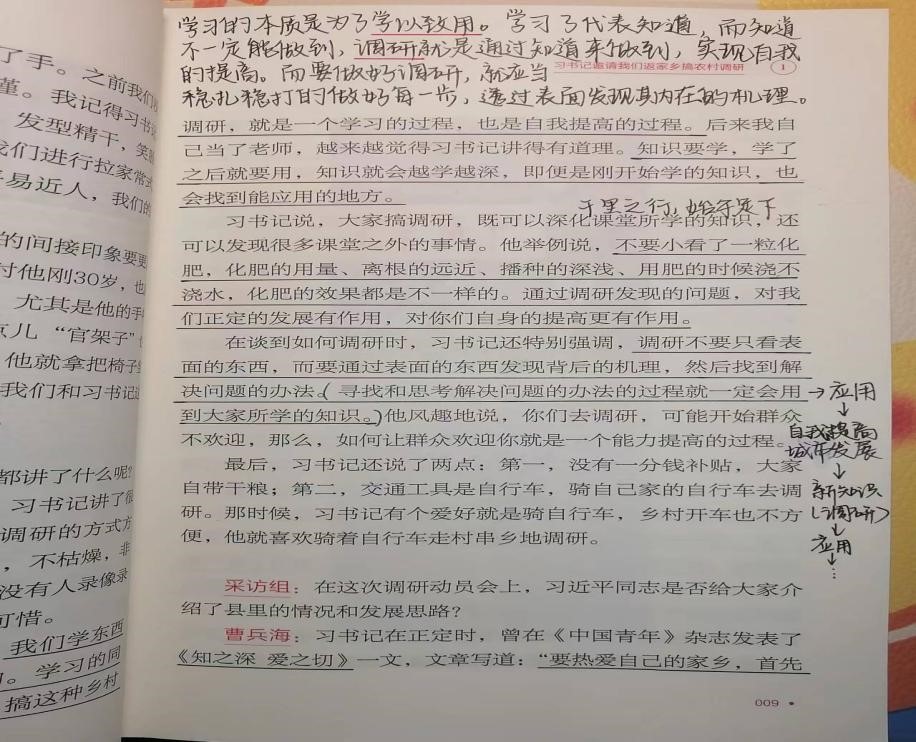 了手。之前我们
堇。我记得习书记
发型精干，笑
我们进行拉家常式
易近人，我们的
的间接印象要更
时他刚30岁，也
尤其是他的手
点儿“官架子”
他就拿把椅子
我们和习书记
都讲了什么呢？
习书记讲了很
调研的方式方
，不枯燥，非
没有人录像录
可惜。
我们学东西
。学习的同
搞这种乡村
学习的本质是为了学以致用。学习了代表知道，而知道
不一定能做到，调研就是通过知道来做到，实现自我
的提高。而要做好调研，就应当
习书记邀请我们返家乡搞农村调研 1
稳扎稳打的做好每一步，透过表面发现其内在的机理。
调研，就是一个学习的过程，也是自我提高的过程。后来我自
己当了老师，越来越觉得习书记讲得有道理。知识要学，学了
之后就要用，知识就会越学越深，即便是刚开始学的知识，也
会找到能应用的地方。
千里之行，始于足下
习书记说，大家搞调研，既可以深化课堂所学的知识，还
可以发现很多课堂之外的事情。他举例说，不要小看了一粒化
肥，化肥的用量、离根的远近、播种的深浅、用肥的时候浇不
浇水，化肥的效果都是不一样的。通过调研发现的问题，对我
们正定的发展有作用，对你们自身的提高更有作用。
在谈到如何调研时，习书记还特别强调，调研不要只看表
面的东西，而要通过表面的东西发现背后的机理，然后找到解
决问题的办法。（寻找和思考解决问题的办法的过程就一定会用
到大家所学的知识。）他风趣地说，你们去调研，可能开始群众
不欢迎，那么，如何让群众欢迎你就是一个能力提高的过程。
最后，习书记还说了两点：第一，没有一分钱补贴，大家
自带干粮；第二，交通工具是自行车，骑自己家的自行车去调
研。那时候，习书记有个爱好就是骑自行车，乡村开车也不方
便，他就喜欢骑着自行车走村串乡地调研。
采访组：在这次调研动员会上，习近平同志是否给大家介
绍了县里的情况和发展思路？
曹兵海：习书记在正定时，曾在《中国青年》杂志发表了
《知之深 爱之切》一文，文章写道：“要热爱自己的家乡，首先
009
→应用
↓
自我提高
城市发展
↓
新知识
（调研）
↓
应用
↓
…